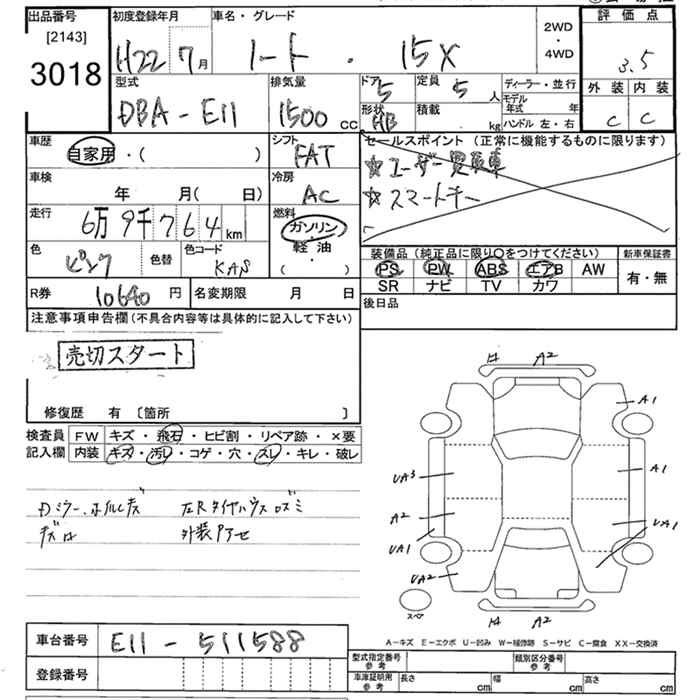 出品番号
[2143]
3018
初度登録年月
H22 7月
車名・グレード
ノート・15X
2WD
・
4WD
評価点
3.5
外装 内装
C C
型式
DBA-E11
排気量
1500 cc
ドア 5
定員 5 人
ディーラー・並行
モデル年式 年
形状 HB
積載 kg
ハンドル 左・右
車歴
自家用・( )
シフト
FAT
セールスポイント (正常に機能するものに限ります)
☆ユーザー買取車
☆スマートキー
車検
年 月( 日)
冷房
AC
走行
6万9千764km
燃料
ガソリン
軽油・
( ・ )
色
ピンク
色替
色コード
KAN
装備品 (純正品に限り○をつけてください)
PS PW ABS エアB AW
SR ナビ TV カワ
新車保証書
有・無
R券 10640円
名変期限 月 日
後日品
注意事項申告欄(不具合内容等は具体的に記入して下さい)
売切スタート
修復歴 有 〔箇所 〕
検査員 FW キズ・飛石・ヒビ割・リペア跡・×要
記入欄 内装 キズ・汚レ・コゲ・穴・スレ・キレ・破レ
Dミラー、ホイルキズ 左Rタイヤハウスユガミ
外装アセ
H A2
A1
UA3
A1
A2
UA1
UA1
UA2
スペア
H A2
A-キズ E-エクボ U-凹み W-補修跡 S-サビ C-腐食 XX-交換済
車台番号 E11-511588
登録番号
型式指定番号 参考
類別区分番号 参考
車庫証明用 参考 長さ cm 幅 cm 高さ cm